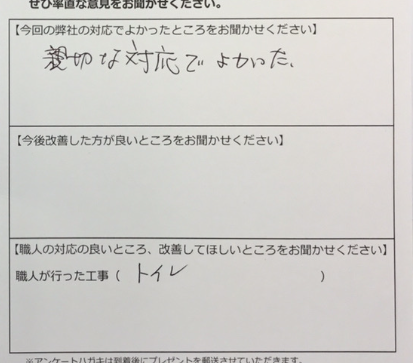 ぜひ率直な意見をお聞かせください。
【今回の弊社の対応でよかったところをお聞かせください】
親切な対応でよかった、
【今後改善した方が良いところをお聞かせください】
【職人の対応の良いところ、改善してほしいところをお聞かせください】
職人が行った工事（ トイレ ）
※アンケートハガキは到着後にプレゼントを郵送させていただきます。